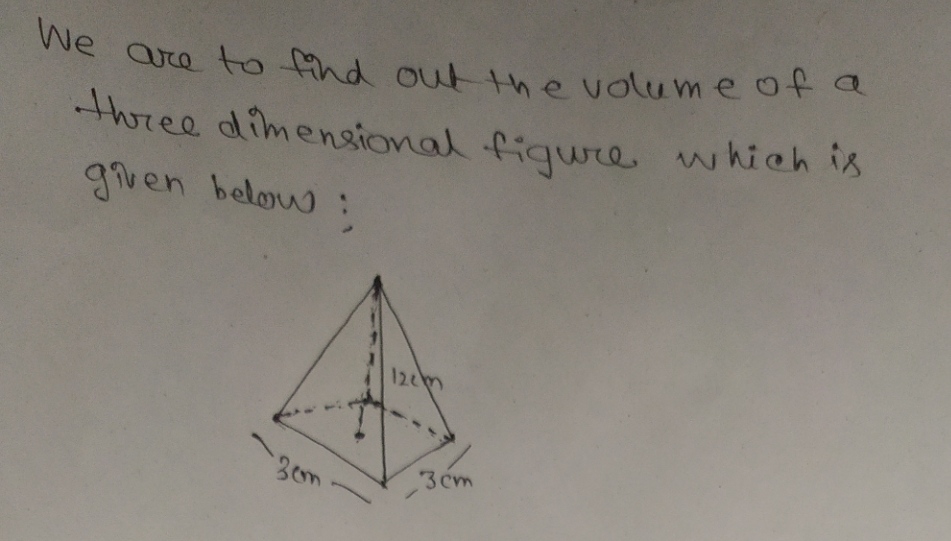 We are to find out the volume of a
three dimensional figure which is
given below :
12cm
3cm
3cm